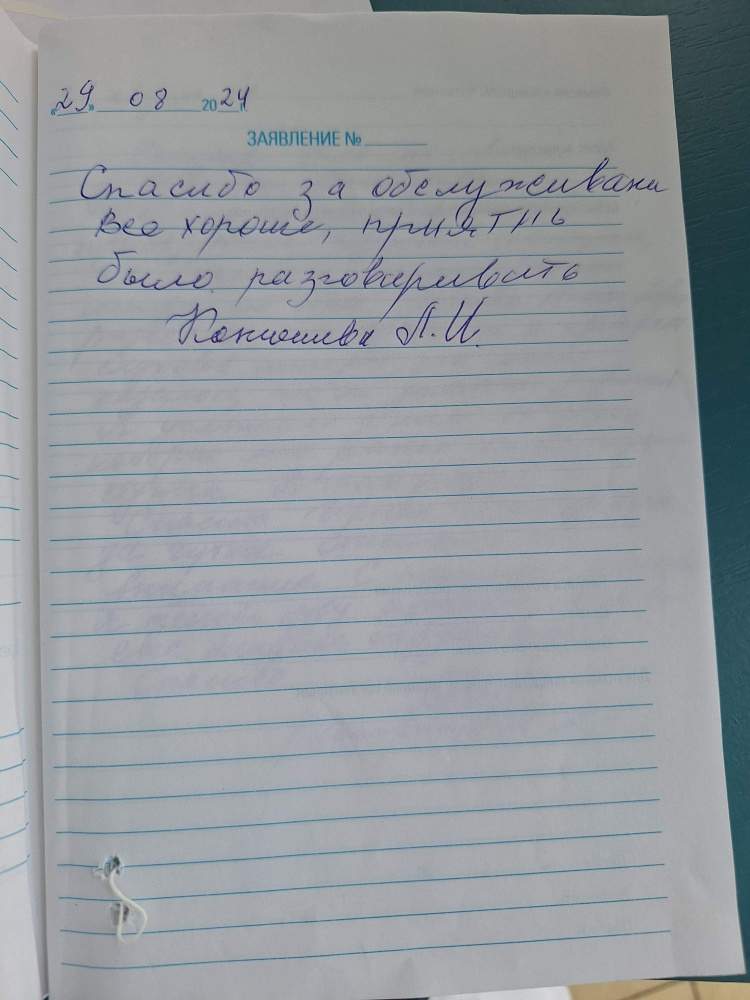 «29» 08 2024
ЗАЯВЛЕНИЕ №
Спасибо за обслуживани
Все хороше, приятнь
было разговаривать
Л.И.